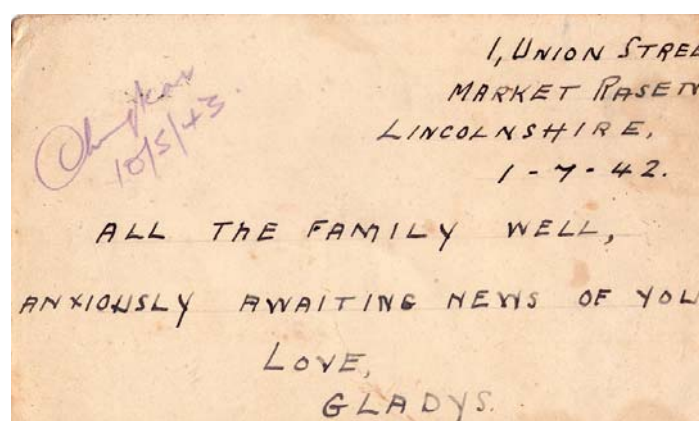 1, UNION STREE
MARKET RASEN
LINCOLNSHIRE,
1-7-42.
10/5/43.
ALL THE FAMILY WELL,
ANXIOUSLY AWAITING NEWS OF YOU
LOVE,
GLADYS.